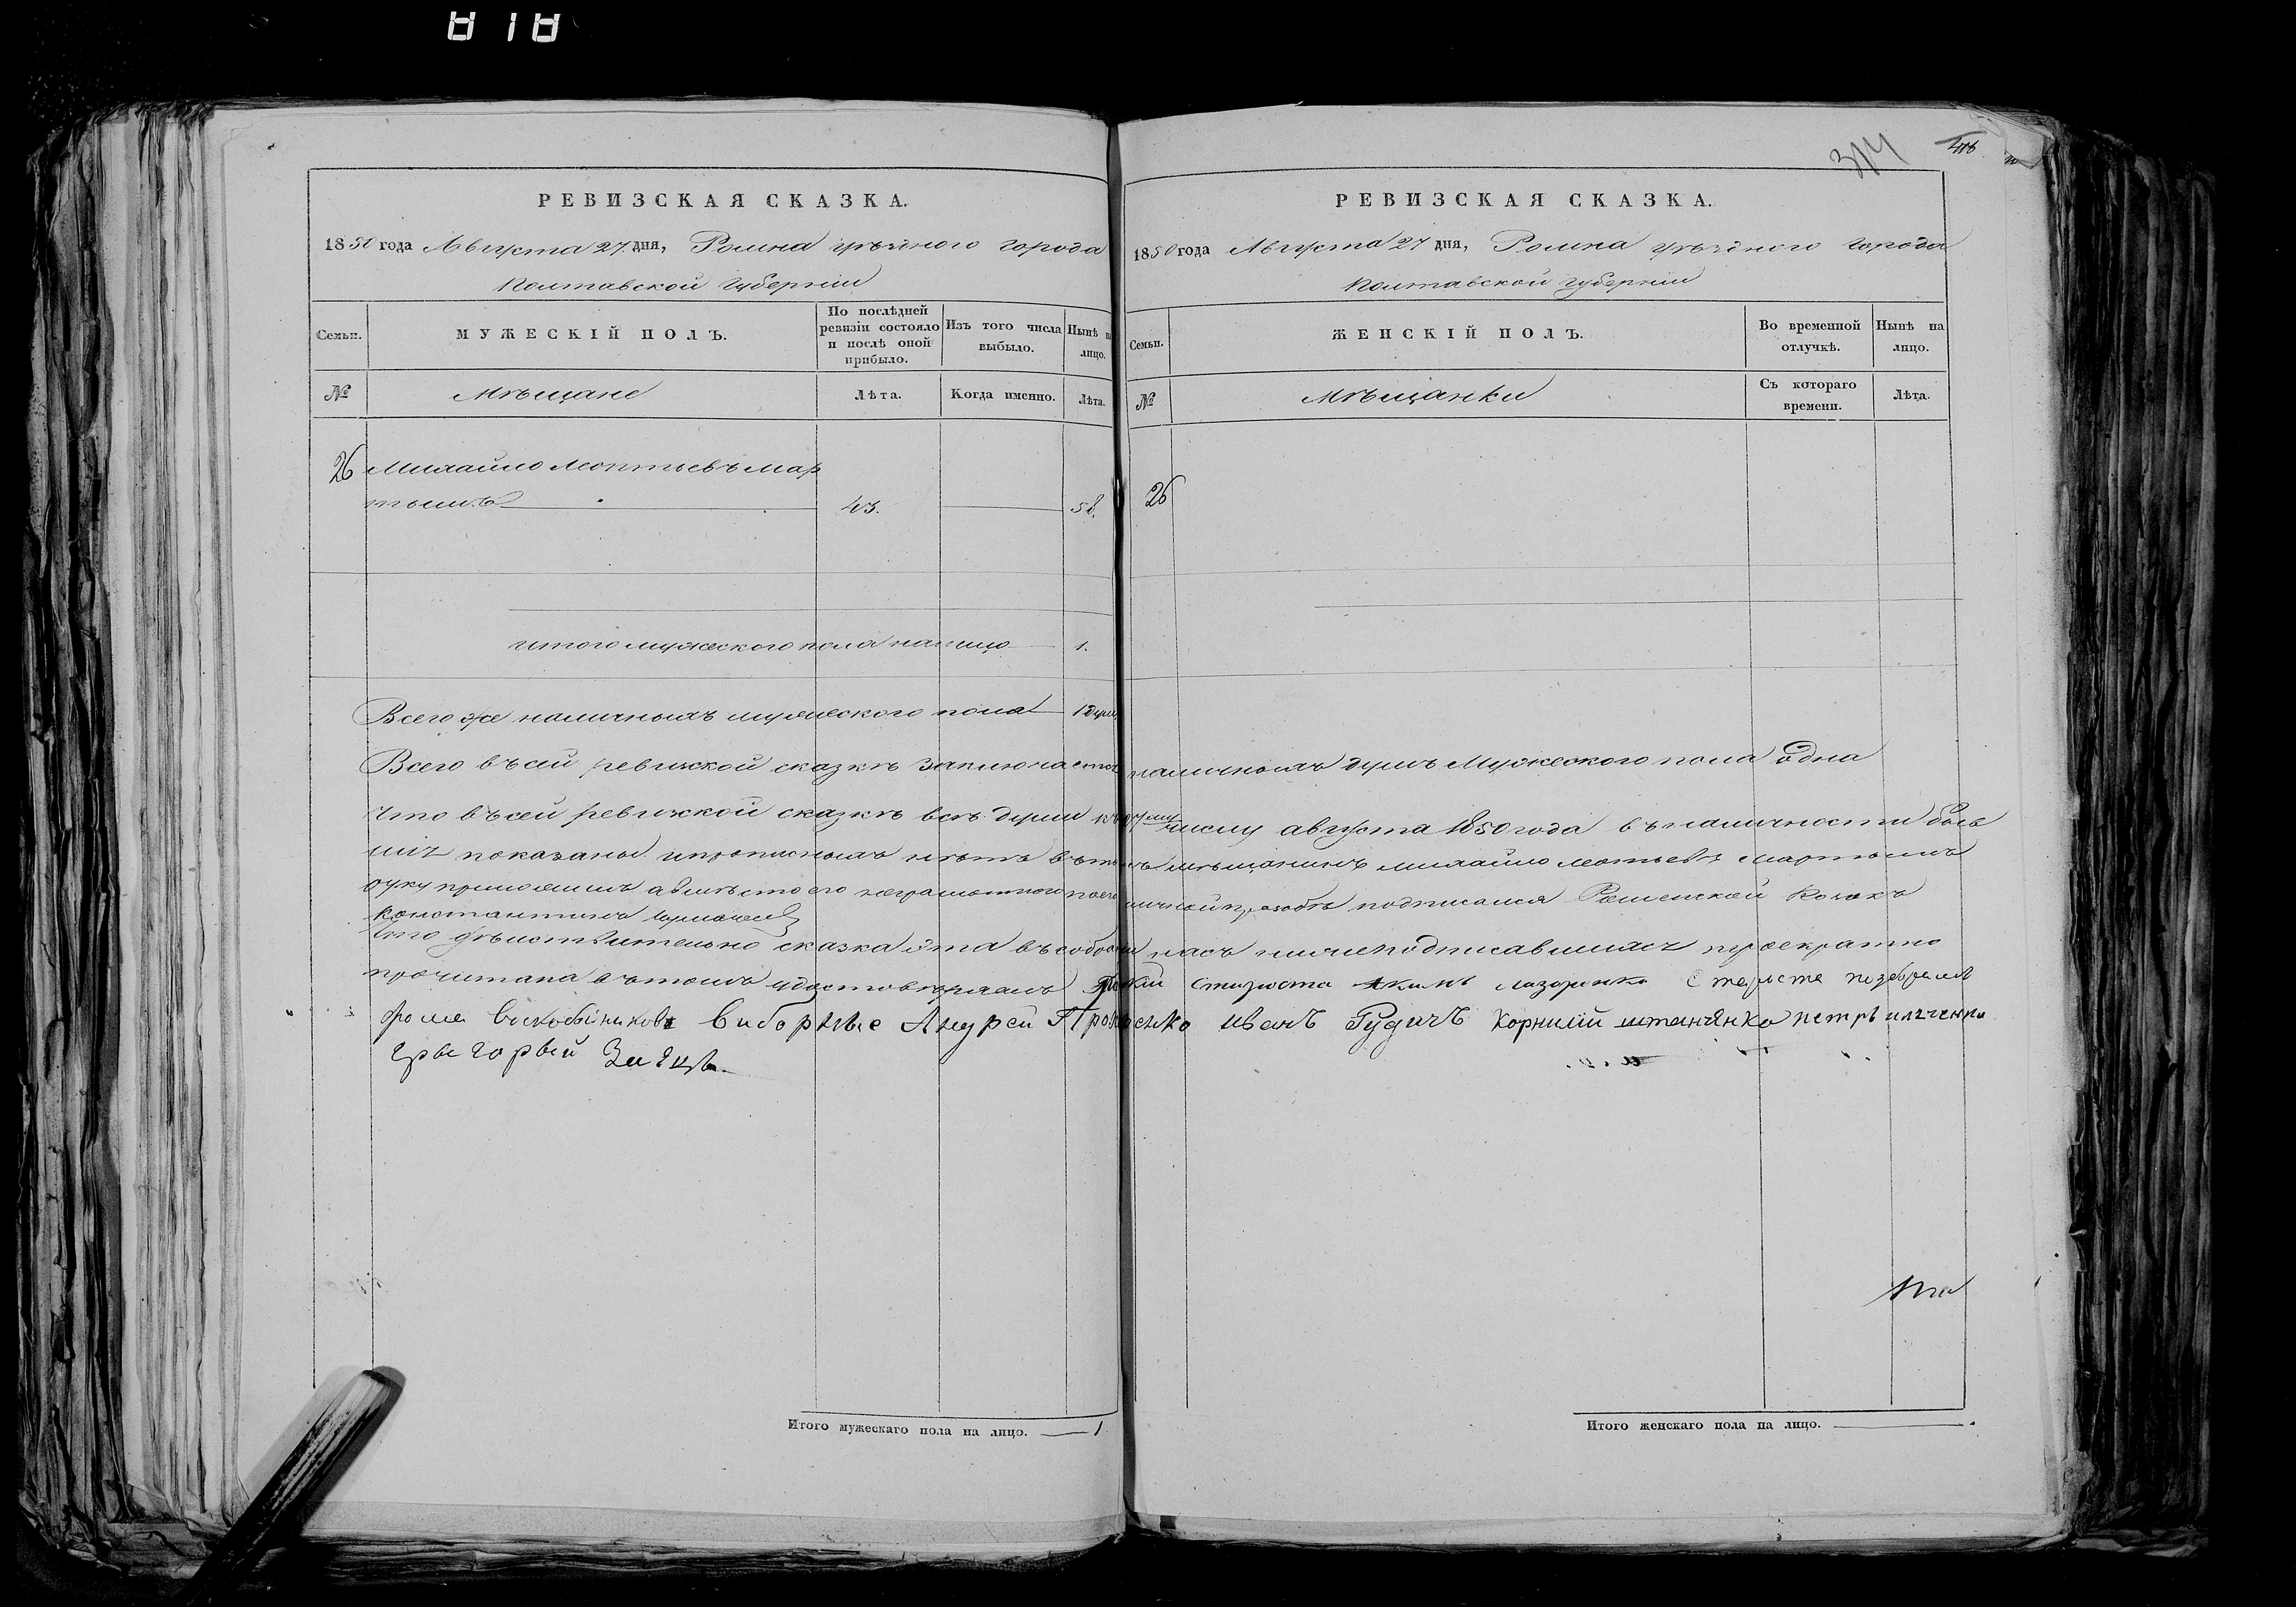 818
314
РЕВИЗСКАЯ СКАЗКА.
1850 года Августа 27 дня, Ромна уѣзднаго города
Полтавской Губерніи
Семьи.
МУЖЕСКІЙ ПОЛЪ.
По послѣдней ревизіи состояло и послѣ оной прибыло.
Изъ того числа выбыло.
Нынѣ на лицо.
№
Мѣщане
Лѣта.
Когда именно.
Лѣта.
26 Михайло Леонтьевъ Мар
тышъ 43. 58.
итого мужеского пола налицо 1.
Всего же наличныхъ мужеского пола 1 душ
РЕВИЗСКАЯ СКАЗКА.
1850 года Августа 27 дня, Ромна уѣзднаго города
Полтавской губерніи
Семьи.
ЖЕНСКІЙ ПОЛЪ.
Во временной отлучкѣ.
Нынѣ на лицо.
№
Мѣщанки
Съ котораго времени.
Лѣта.
26
Всего въ сей ревизкой сказкѣ заключается наличныхъ душъ Мужеского пола Одна
Что въ сей ревизкой сказкѣ всѣ души къ 27му числу августа 1850 года въ наличности быв
шіе показаны и прописныхъ нѣтъ въ томъ мѣщанинъ Михайло Леонтьевъ Мартышъ
руку приложилъ а вмѣсто его неграмотного по его личной прозбѣ подписался Роменской Козакъ
Константинъ
Что дѣиствительно сказка эта въ собраніи насъ нижеподписавшихся троекратно
прочитана въ томъ удостовѣряемъ староста лазоренко Староста
фома Воскобойниковъ виборные Андрей Иванъ Гудичъ Корнилій петръ
Грыгорый Заецъ
Итого мужескаго пола на лицо. — 1
Итого женскаго пола на лицо. —